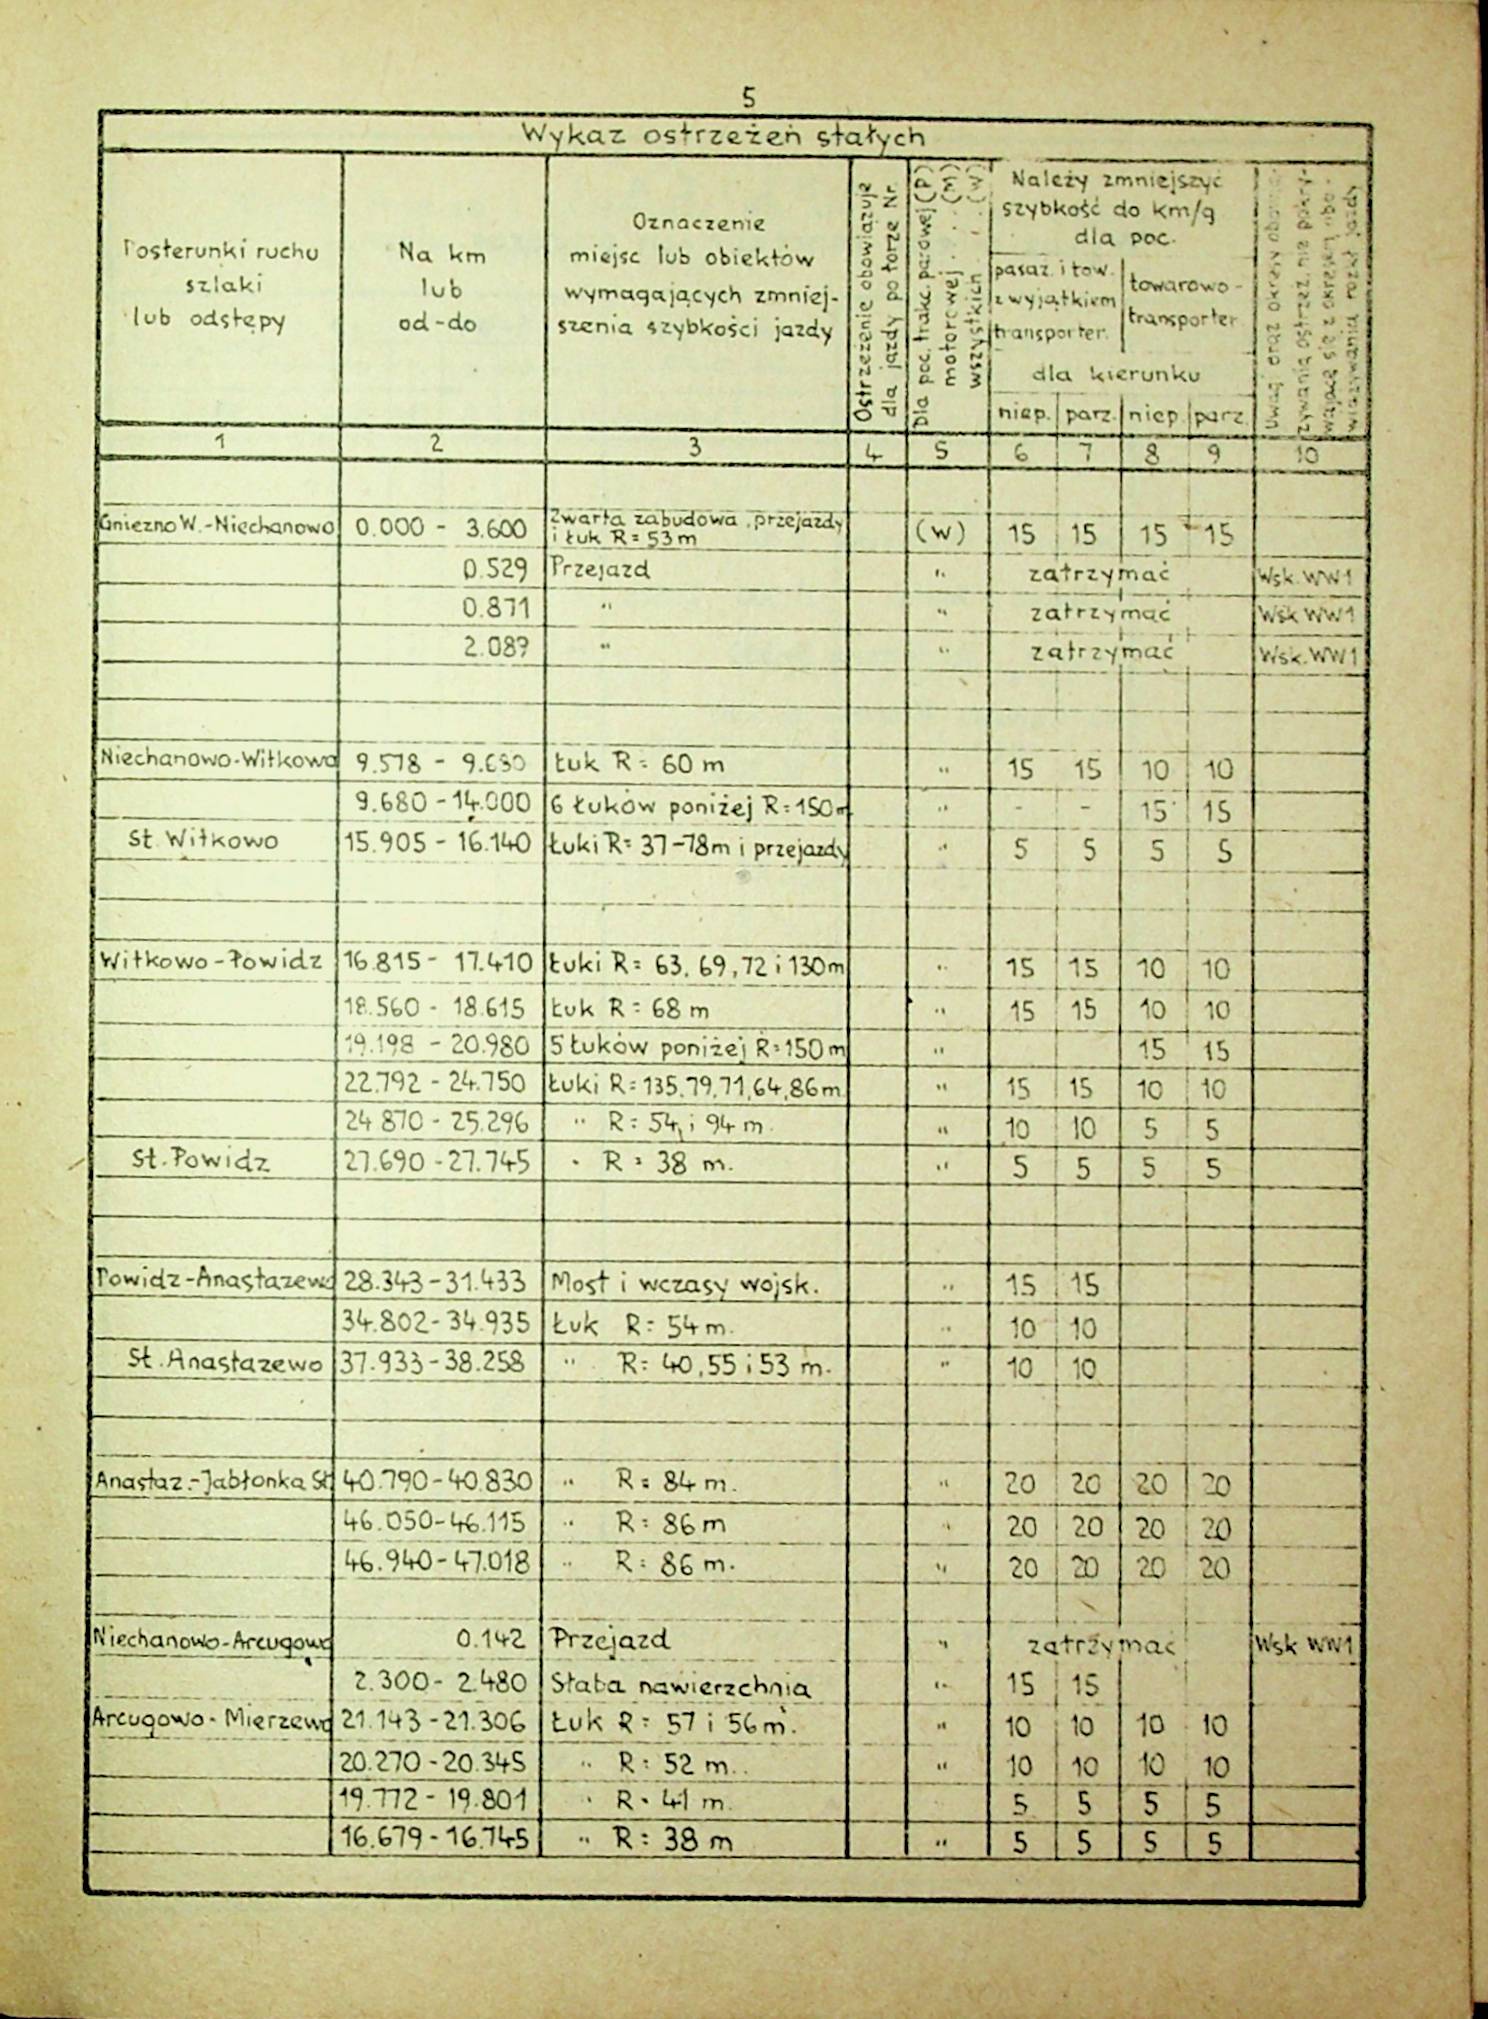 5
Wykaz ostrzeżeń stałych
Posterunki ruchu
szlaki
lub odstępy
Na km
lub
od-do
Oznaczenie
miejsc lub obiektów
wymagających zmniej-
szenia szybkości jazdy
Ostrzeżenie obowiązuje
dla jazdy po torze Nr.
Dla poc. trakc. parowej (P)
motorowej . . . (M)
wszystkich . . . (W)
Należy zmniejszyć
szybkość do km/g
dla poc.
pasaż. i tow.
z wyjątkiem
transporter.
towarowo-
transporter
dla kierunku
niep. parz. niep. parz.
Uwagi oraz okresy
zywania ostrzeż. nie pokry-
wające się z okresem obo-
wiązywania rozkł. jazdy
1 2 3 4 5 6 7 8 9 10
Gniezno W.-Niechanowo 0.000 - 3.600 Zwarta zabudowa, przejazdy
i łuk R = 53 m (W) 15 15 15 15
0.529 Przejazd " zatrzymać Wsk. WW1
0.871 " " zatrzymać Wsk WW1
2.087 " " zatrzymać Wsk. WW1
Niechanowo-Witkowo 9.578 - 9.680 Łuk R = 60 m " 15 15 10 10
9.680 - 14.000 6 Łuków poniżej R=150m " - - 15 15
St Witkowo 15.905 - 16.140 Łuki R= 37-78m i przejazdy " 5 5 5 5
Witkowo-Powidz 16.815 - 17.410 Łuki R= 63, 69, 72 i 130m " 15 15 10 10
18.560 - 18.615 Łuk R = 68 m " 15 15 10 10
19.198 - 20.980 5 Łuków poniżej R=150m " 15 15
22.792 - 24.750 Łuki R=135,79,71,64,86m " 15 15 10 10
24 870 - 25.296 " R = 54 i 94 m. " 10 10 5 5
St. Powidz 27.690 - 27.745 " R = 38 m. " 5 5 5 5
Powidz-Anastazewo 28.343 - 31.433 Most i wczasy wojsk. " 15 15
34.802 - 34.935 Łuk R = 54 m. " 10 10
St. Anastazewo 37.933 - 38.258 " R= 40,55 i 53 m. " 10 10
Anastaz.-Jabłonka St 40.790 - 40.830 " R = 84 m. " 20 20 20 20
46.050 - 46.115 " R = 86 m " 20 20 20 20
46.940 - 47.018 " R = 86 m. " 20 20 20 20
Niechanowo-Arcugowo 0.142 Przejazd " zatrzymać Wsk WW1
2.300 - 2.480 Słaba nawierzchnia " 15 15
Arcugowo-Mierzewo 21.143 - 21.306 Łuk R = 57 i 56 m. " 10 10 10 10
20.270 - 20.345 " R = 52 m. " 10 10 10 10
19.772 - 19.801 " R = 41 m. 5 5 5 5
16.679 - 16.745 " R = 38 m " 5 5 5 5